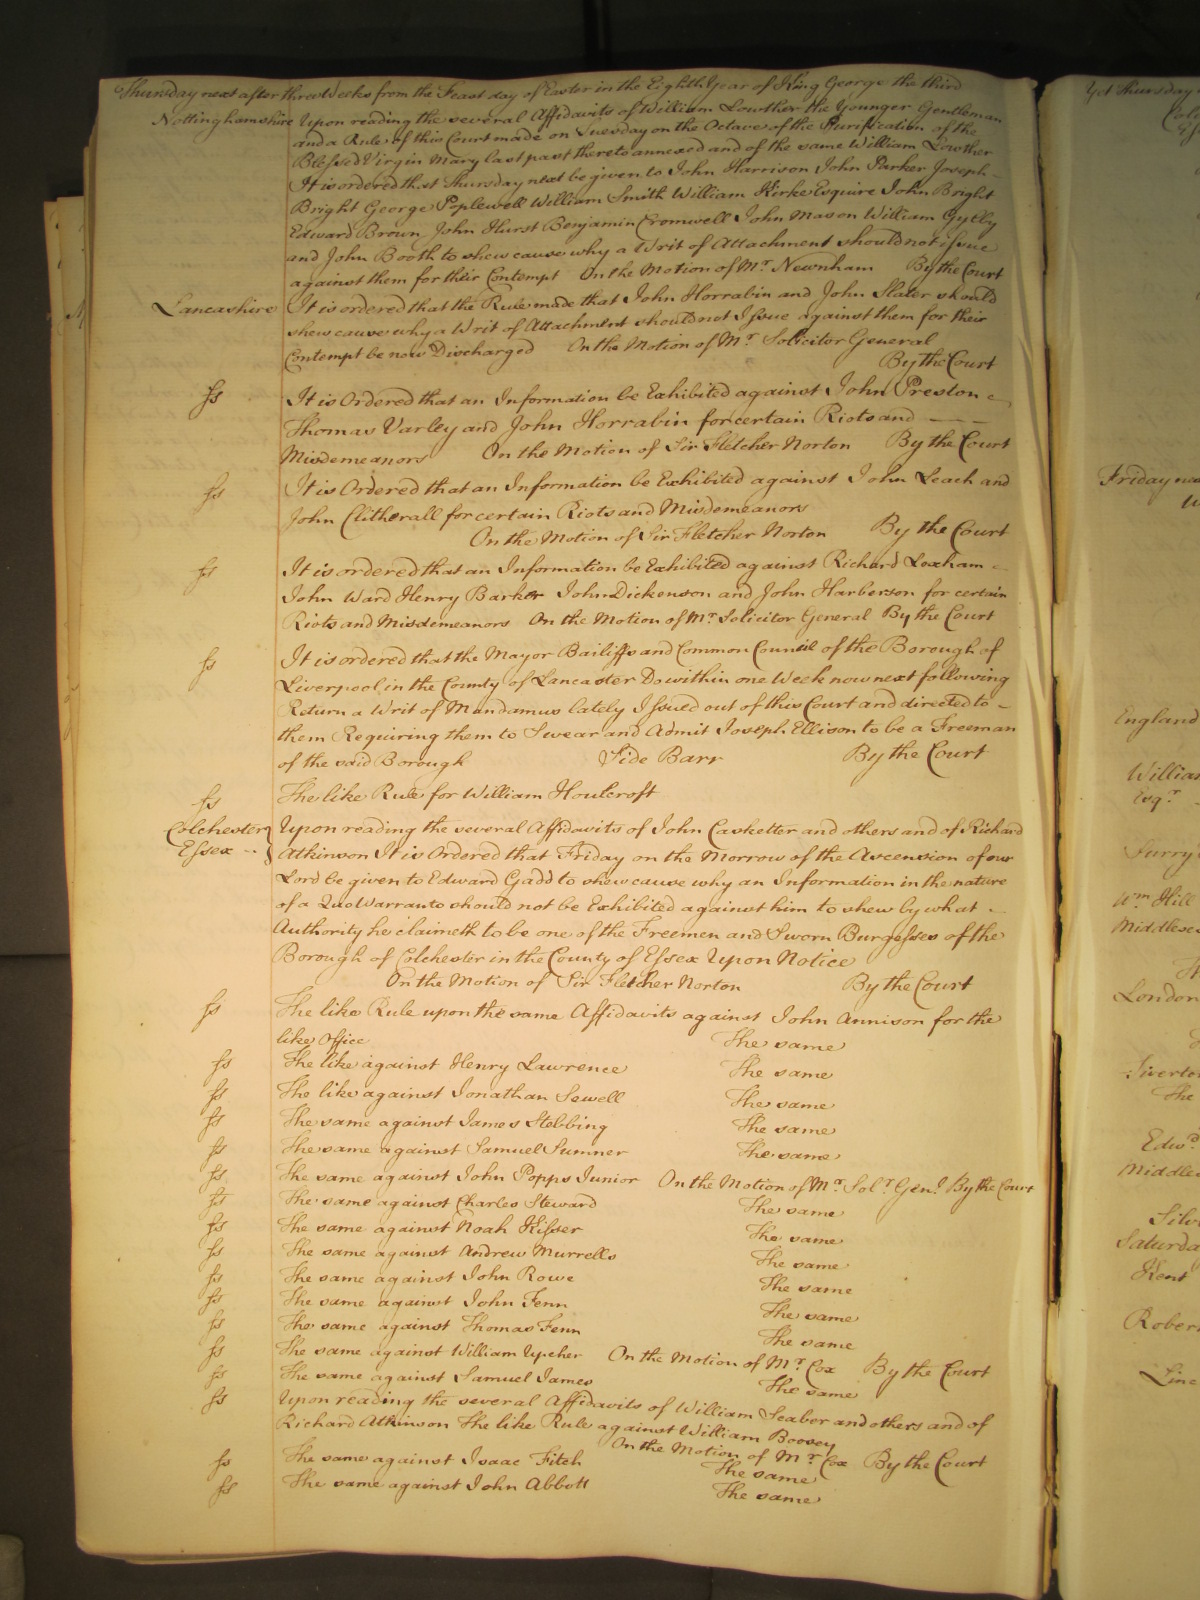 Thursday next after three Weeks from the Feast day of Easter in the Eighth Year of King George the third
Nottinghamshire Upon reading the several Affidavits of William Lowther the Younger Gentleman
and a Rule of this Court made on Tuesday on the Octave of the Purification of the
Blessed Virgin Mary last past thereto annexed and of the same William Lowther
It is ordered that Thursday next be given to John Harrison John Parker Joseph
Bright George Poplewell William Smith William Kirke Esquire John Bright
Edward Brown John Hurst Benjamin Cromwell John Mason William Gylby
and John Booth to shew cause why a Writ of Attachment should not issue
against them for their Contempt On the Motion of Mr Newnham By the Court
Lancashire It is ordered that the Rule made that John Horrabin and John Slater should
shew cause why a Writ of Attachment should not Issue against them for their
Contempt be now Discharged On the Motion of Mr Solicitor General
By the Court
ss It is Ordered that an Information be Exhibited against John Preston
Thomas Varley and John Horrabin for certain Riots and
Misdemeanors On the Motion of Sir Fletcher Norton By the Court
ss It is Ordered that an Information be Exhibited against John Leach and
John Clitherall for certain Riots and Misdemeanors
On the Motion of Sir Fletcher Norton By the Court
ss It is ordered that an Information be Exhibited against Richard Loxham
John Ward Henry Barker John Dickenson and John Harberson for certain
Riots and Misdemeanors On the Motion of Mr Solicitor General By the Court
ss It is ordered that the Mayor Bailiffs and Common Council of the Borough of
Liverpool in the County of Lancaster Do within one Week now next following
Return a Writ of Mandamus lately Issued out of this Court and directed to
them Requiring them to Swear and Admit Joseph Ellison to be a Freeman
of the said Borough Side Barr By the Court
ss The like Rule for William Houlcroft
Colchester Upon reading the several Affidavits of John Casketter and others and of Richard
Essex Atkinson It is Ordered that Friday on the Morrow of the Ascension of our
Lord be given to Edward Gadd to shew cause why an Information in the nature
of a Quo Warranto should not be Exhibited against him to shew by what
Authority he claimeth to be one of the Freemen and Sworn Burgesses of the
Borough of Colchester in the County of Essex Upon Notice
On the Motion of Sir Fletcher Norton By the Court
ss The like Rule upon the same Affidavits against John Annison for the
like Office The same
ss The like against Henry Lawrence The same
ss The like against Jonathan Sewell The same
ss The same against James Stebbing The same
ss The same against Samuel Sumner The same
ss The same against John Popps Junior On the Motion of Mr Solr Genl By the Court
ss The same against Charles Steward The same
ss The same against Noah Kisser The same
ss The same against Andrew Murrells The same
ss The same against John Rowe The same
ss The same against John Fenn The same
ss The same against Thomas Fenn The same
ss The same against William Upcher On the Motion of Mr Cox By the Court
ss The same against Samuel James The same
ss Upon reading the several Affidavits of William Seaber and others and of
Richard Atkinson The like Rule against William Boosey
On the Motion of Mr Cox By the Court
ss The same against Isaac Fitch The same
ss The same against John Abbott The same
Yet Thursday
Friday
England
William
Esqr
Surry
Wm Hill
London
The
Edwd
Kent